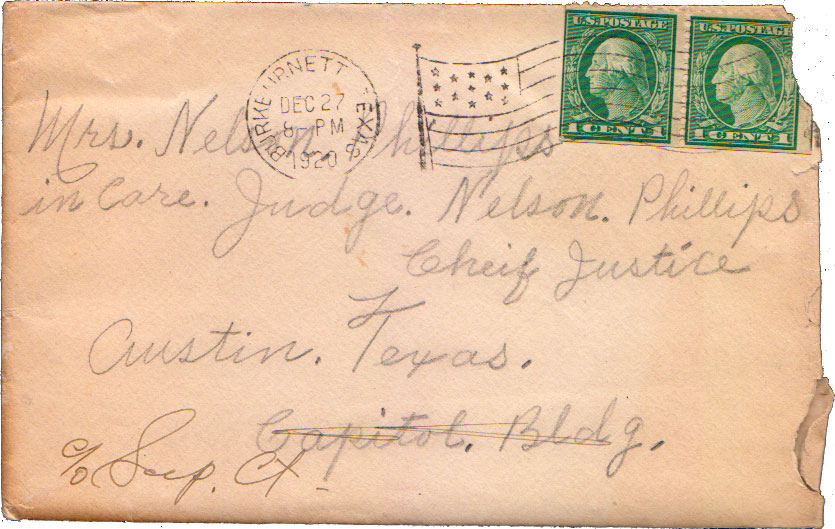 U.S. POSTAGE U.S. POSTAGE
1 CENT 1 1 CENT 1
BURKBURNETT TEXAS
DEC 27
8-PM
1920
Mrs. Nelson Phillips
in Care. Judge. Nelson. Phillips
Cheif Justice
Austin. Texas.
Capitol. Bldg.
c/o Sup. Ct.